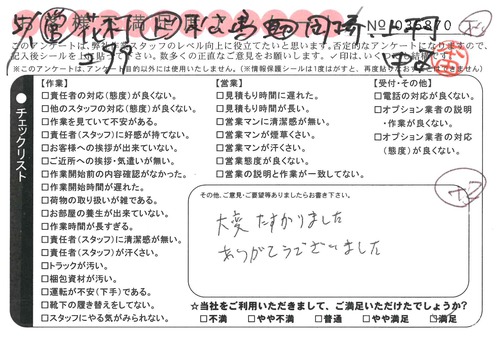 このアンケートは、弊社作業スタッフのレベル向上に役立てたいと思います。否定的なアンケートになりますので、
記入後シールを上にお貼り下さい。数多くの正直なご意見をお願いします。✓印は、いくつでも結構です
※このアンケートは、アンケート目的以外には使用いたしません。(※情報保護シールは1度がすと、再度貼りなおすことはできません)
チェックリスト
【作業】
□責任者の対応(態度)が良くない。
□他のスタッフの対応(態度)が良くない。
□作業を見ていて不安がある。
□責任者(スタッフ)に好感が持てない。
□お客様への挨拶が出来ていない。
□ご近所への挨拶・気遣いが無い。
□作業開始前の内容確認がなかった。
□作業開始時間が遅れた。
□荷物の取り扱いが雑である。
□お部屋の養生が出来ていない。
□作業時間が長すぎる。
□責任者(スタッフ)に清潔感が無い。
□責任者(スタッフ)が汗くさい。
□トラックが汚い。
□梱包資材が汚い。
□運転が不安(下手)である。
□靴下の履き替えをしてない。
□スタッフにやる気がみられない。
【営業】
□見積もり時間に遅れた。
□見積もり時間が長い。
□営業マンに清潔感が無い。
□営業マンが煙草くさい。
□営業マンが汗くさい。
□営業態度が良くない。
□営業の説明と作業が異なってた。
【受付・その他】
□電話の対応が良くない。
□オプション業者の説明
・作業が良くない。
□オプション業者の対応
(態度)が良くない。
その他、ご意見・ご要望等ありましたらお書き下さい。
大変 たすかりました
ありがとうございました
☆当社をご利用いただきまして、ご満足いただけたでしょうか?
□不満 □やや不満 □普通 □やや満足 ☑満足